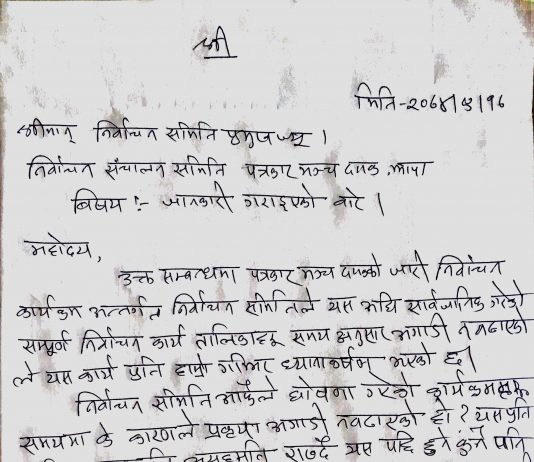 श्री
मिति-२०६४|५|१६
श्रीमान् निर्वाचन समिति प्रमुख ज्यू ।
निर्वाचन संचालन समिति पत्रकार मञ्च दमक, झापा
बिषय :- जानकारी गराइएको बारे ।
महोदय,
उक्त सम्बन्धमा पत्रकार मञ्च दमकको जारी निर्वाचन
कार्यक्रम अन्तर्गत निर्वाचन समितिले यस अघि सार्वजनिक गरेको
सम्पूर्ण निर्वाचन कार्य तालिकाहरु समय अनुसार अगाडी नबढाएको
ले यस कार्य प्रति हाम्रो गम्भिर ध्यानाकर्षण भएको छ ।
निर्वाचन समिति आफैले घोषणा गरेको कार्यक्रम
समयमा के कारणले प्रकृया अगाडी नबढाएको हो ? यस प्रति
असहमति राख्दै यस पछि हुने कुनै पनि